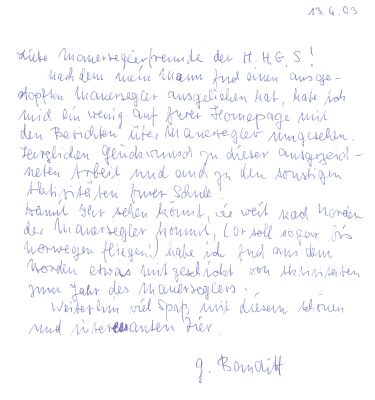 13.6.03
Liebe Mauerseglerfreunde der H.H.G.S!
Nachdem mein Mann Euch einen ausge-
stopften Mauersegler ausgeliehen hat, habe ich
mich ein wenig auf Eurer Homepage mit
den Berichten über Mauersegler umgesehen.
Herzlichen Glückwunsch zu dieser ausgezeich-
neten Arbeit und auch zu den sonstigen
Aktivitäten Eurer Schule.
Damit Ihr sehen könnt, wie weit nach Norden
der Mauersegler kommt, (er soll sogar bis
Norwegen fliegen!) habe ich Euch aus dem
Norden etwas mitgeschickt von Aktivitäten
zum Jahr des Mauerseglers.
Weiterhin viel Spaß mit diesem schönen
und interessanten Tier.
G.